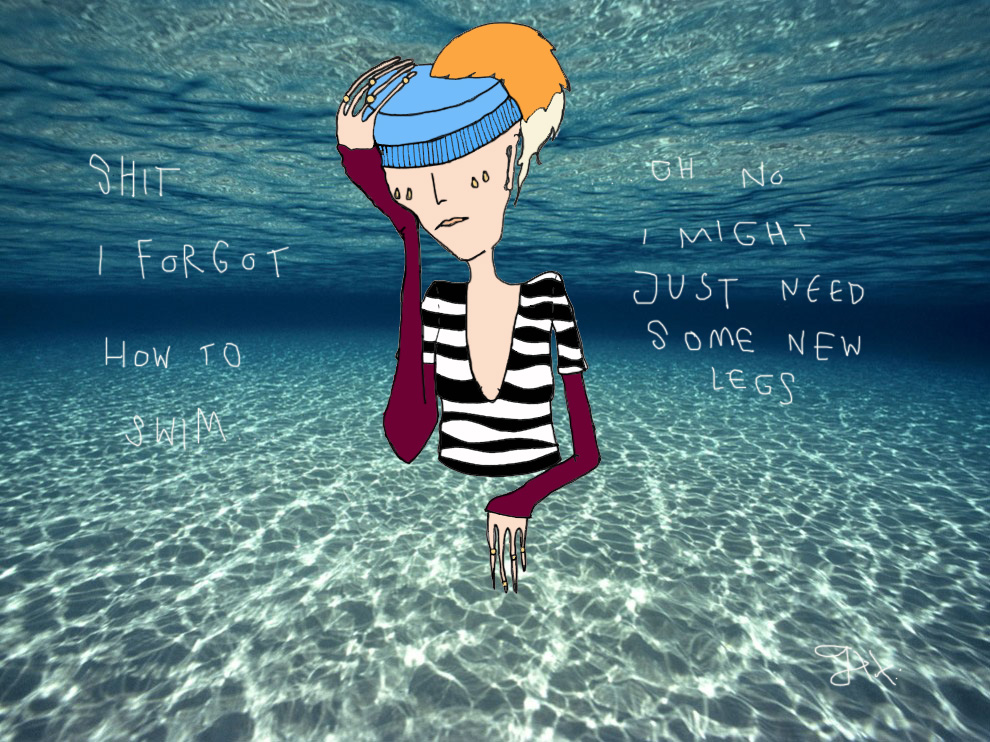 SHIT
I FORGOT
HOW TO
SWIM
OH NO
I MIGHT
JUST NEED
SOME NEW
LEGS